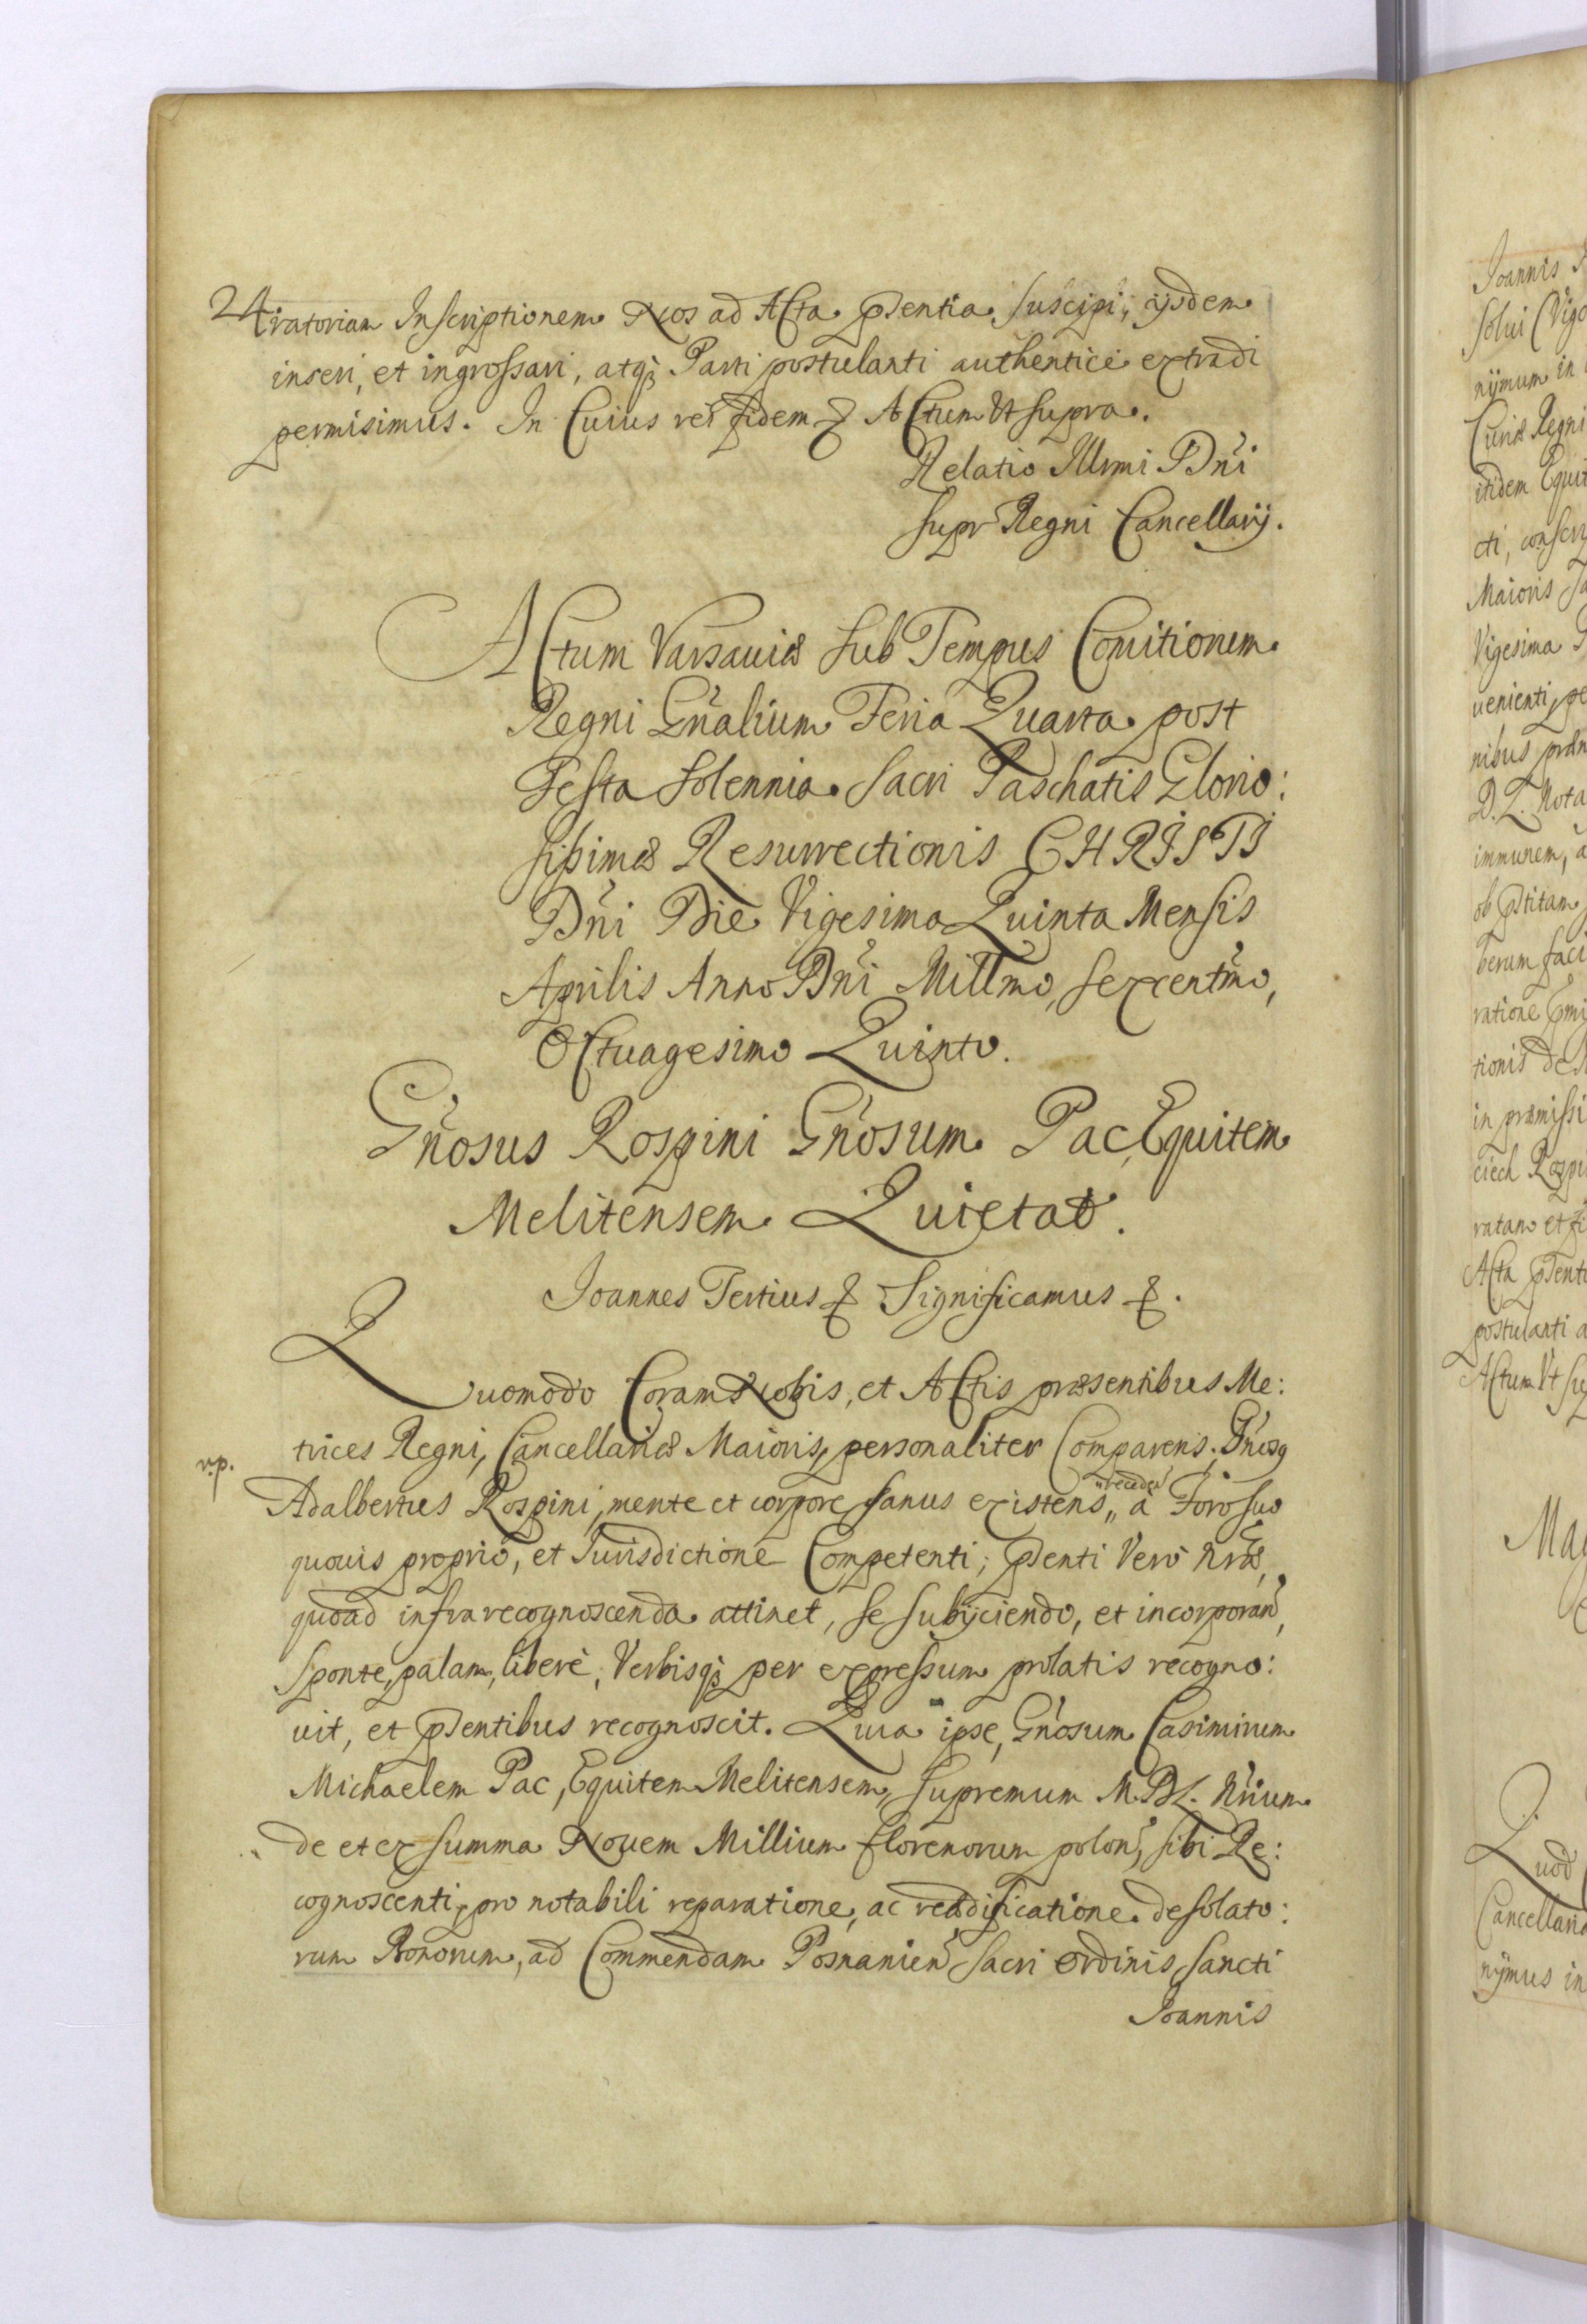 ratoriam Inscriptionem Nos ad Acta pñtia suscipi, ijsdem
inseri, et ingrossari, atq3 Parti postulanti authenticè extradi
permisimus. In Cuius rei fidem & Actum Ut supra.
Relatio Illmi Dñi
supr Regni Cancellarij.
Actum Varsaviæ sub Tempus Comitiorum
Regni Gñalium Feria Quarta post
Festa solennia Sacri Paschatis Glorio:
sissimæ Resurrectionis CHRISTI
Dñi Die Vigesima Quinta Mensis
Aprilis Anno Dñi Millmo, sexcentmo,
Octuagesimo Quinto.
Gñosus Rospini Gñosum Pac, Equitem
Melitensem Quietat.
Joannes Tertius & Significamus &.
Quomodo Coram Nobis, et Actis præsentibus Me:
trices Regni, Cancellariæ Maioris, personaliter Comparens, Gñosq
r.p.
Adalbertus Rospini, mente et corpore sanus existens, „recedeñ à Foro suo
quouis proprio, et Iurisdictione Competenti; pñti Verò nrã,
quoad infra recognoscenda attinet, se subijciendo, et incorporañ,
sponte, palam, liberè, Verbisq3 per expressum prolatis recogno:
uit, et pñtibus recognoscit. Quia ipse, Gñosum Casimirum
Michaelem Pac, Equitem Melitensem, supremum M.D.L. Nrium
de et ex summa Nouem Millium florenorum poloñ, sibi Re:
cognoscenti, pro notabili reparatione, ac reædificatione desolato:
rum Bonorum, ad Commendam Posnanieñ Sacri Ordinis Sancti
Joannis
Joannis
solui
nijmum in
Curiæ Regni
itidem
cti,
Maioris
Vigesima
uenienti,
nibus
D. L. Nota
immunem, a
ob
berum
ratione
tionis de
in præmissi
ciech Rospi
ratam et
Acta
postulanti a
Actum Ut
Quod
Cancellariæ
nijmus in